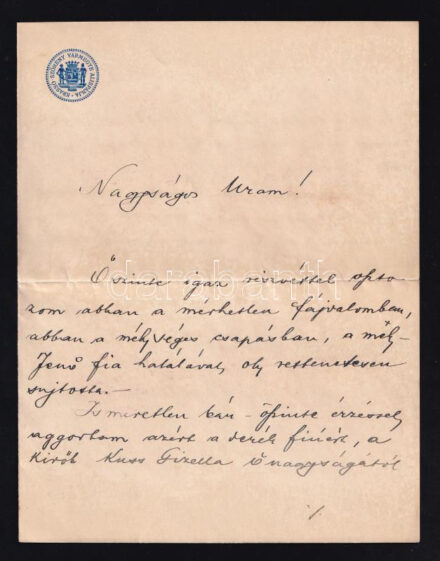 KRASSÓ-SZÖRÉNY VÁRMEGYE ALISPÁNJA
Nagyságos Uram!
Őszinte igaz részvéttel osto
zom abban a mérhetlen fájdalomban,
abban a mélységes csapásban, a mély-
Jenő fia halálával, oly rettenetesen
sujtotta.-
Ismeretlen bár - őszinte érzéssel
aggodtam azért a derék fiúért, a
kiről Kuss Gizella Őnagyságától
./.
darabanth